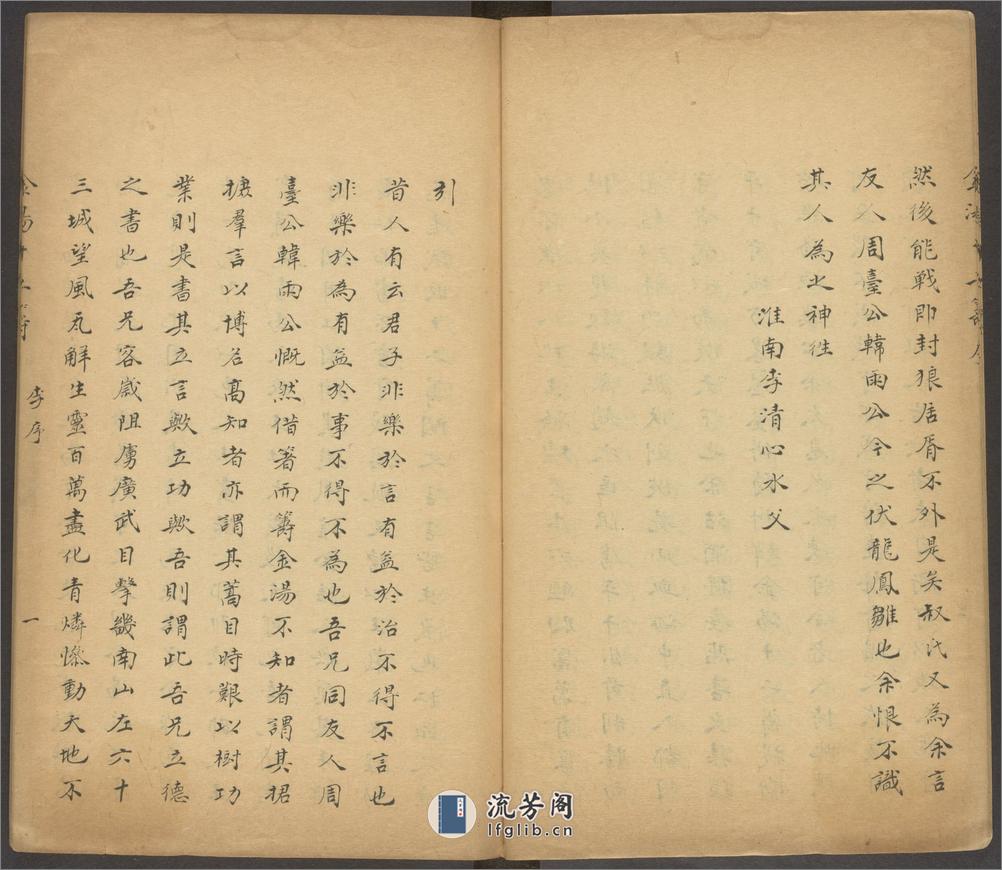 然後能戰即封狼居胥不外是矣叔氏又為余言
友人周臺公韓雨公今之伏龍鳳雛也余恨不識
其人為之神往
淮南李清心水父
引
昔人有云君子非樂於言有益於治不得不言也
非樂於為有益於事不得不為也吾兄同友人周
臺公韓雨公慨然借箸而籌金湯不知者謂其捃
摭羣言以博名高知者亦謂其蒿目時艱以樹功
業則是書其立言歟立功歟吾則謂此吾兄立德
之書也吾兄客歲阻虜廣武目擊畿南山左六十
三城望風瓦解生靈百萬盡化青燐慘動天地不
李序
一
流芳阁
lfglib.cn